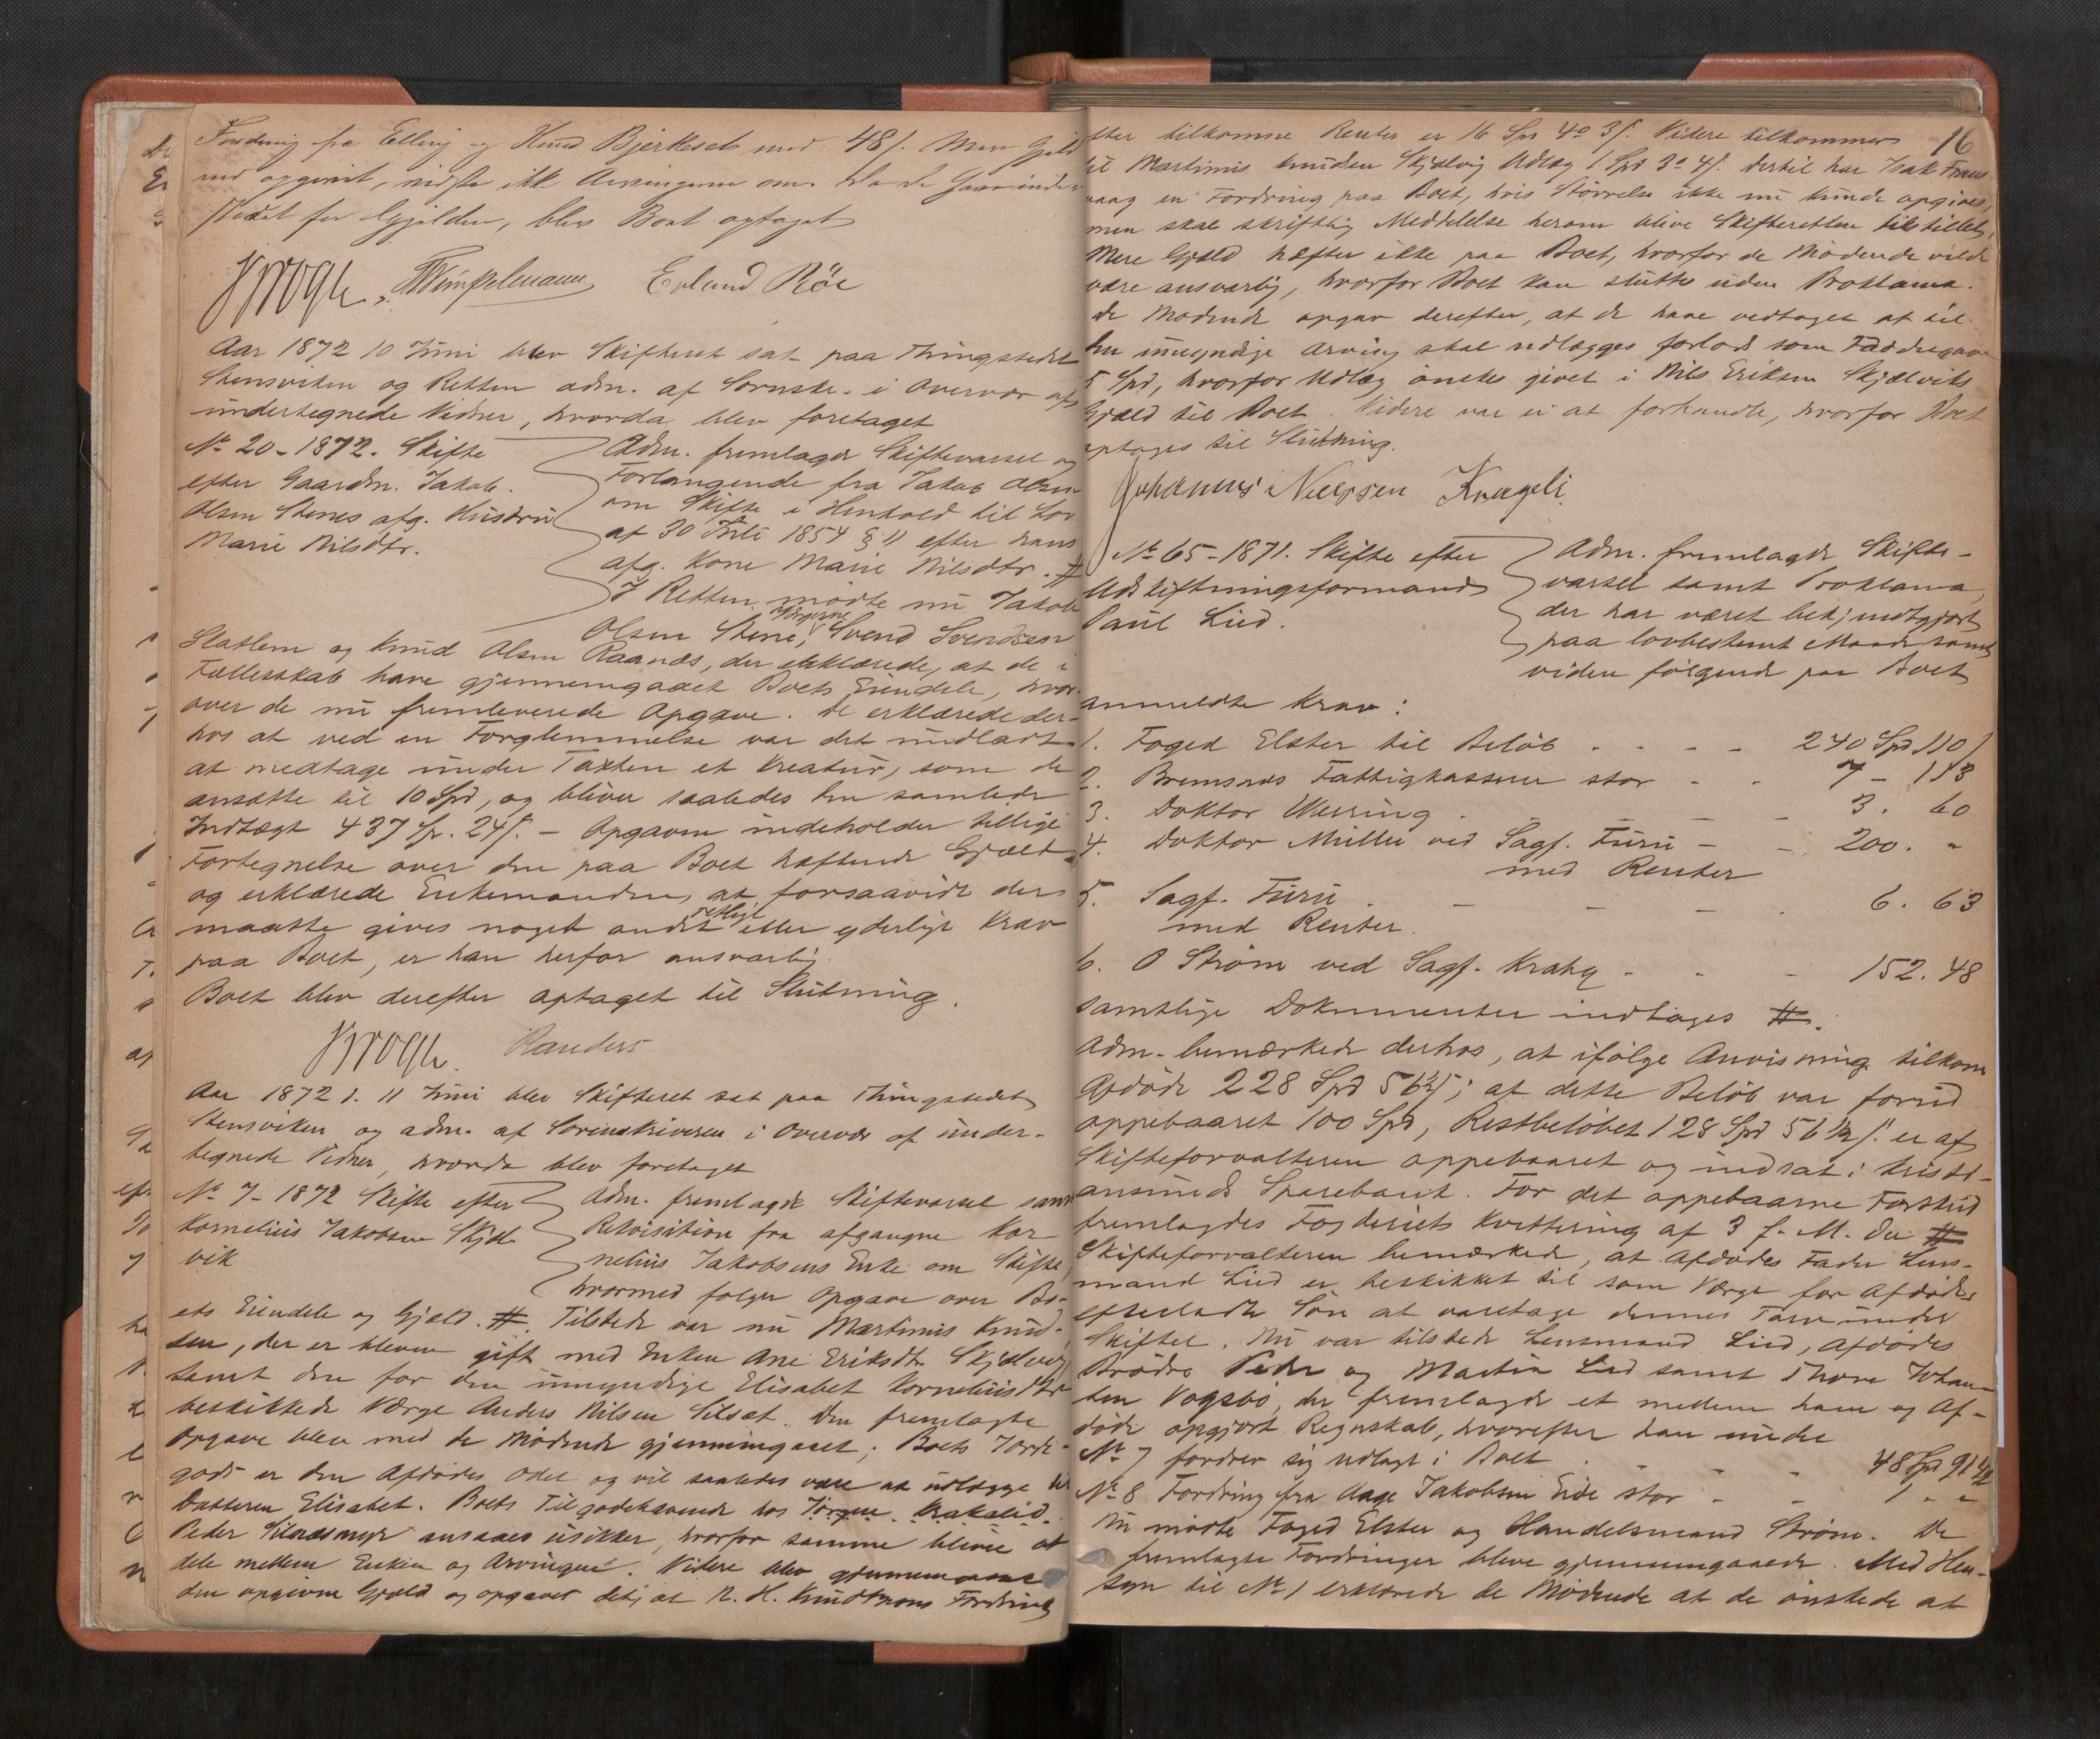 Fordring fra Elling og Knud Bjerkeset med 48 s. Men Gjeld
ud opgivet, vidste ikke Arvingerne om. Da de Garrinder
stedet for Gjælden, blev Boet optaget
Krogh. Wimpelmann Erland Röe
Aar 1872 10 Juni blev Skifteret sat paa Thingstedet
Stensviken og Retten adm. af Sornskr. i Overvær af
undertegnede Vidner, hvorda blev foretaget
No 20-1872. Skifte
efter Gaardm. Jakob
Olsen Stenes afg. Hustru
Marie Nilsdtr.
Adm. fremlagde Skiftevarsel og
Forlangende fra Jakob Olsen
om Skifte i Henhold til Lov
af 30 Juli 1854 § 11 efter hans
afg. Kone Marie Nilsdtr. #
I Retten mødte nu Jakob
Olsen Stene, Svend Svendsen
Slatlem og Knud Olsen Raanæs, der erklærede, at de i
Fællesskab have gjennemgaaet Boets Eiendele, hvor-
over de nu fremleverede Opgave. De erklærede der-
hos at ved en Forglemmelse var det undladt
at medtage under Taxten et Kreatur, som de
ansatte til 10 Spd, og bliver saaledes den samlede
Indtægt 437 Sp. 24 s. - Opgaven indeholder tillige
Fortegnelse over den paa Boet hæftende Gjæld
og erklærede Enkemanden, at forsaavidt der
maatte gives noget andet retligt eller yderlige Krav
paa Boet, er han herfor ansvarlig
Boet blev derefter optaget til Slutning.
Krogh. Randers
Aar 1872 d. 11 Juni blev Skifteret sat paa Thingstedet
Stensviken og adm. af Sorenskriveren i Overvær af under-
tegnede Vidner, hvorda blev foretaget
No 7-1872 Skifte efter
Kornelius Jakobsen Skjel-
vik
Adm. fremlagde Skiftevarsel samt
Rekvisition fra afgangne Kor-
nelius Jakobsens Enke om Skifte,
hvormed følger Opgave over Bo-
ets Eiendele og Gjæld. #. Tilstede var nu Martinus Knud-
sen, der er bleven gift med Enken Ane Eriksdtr Skjelvig
samt den for den umyndige Elisabet Korneliusdtr
beskikkede Værge Anders Nilsen Silset. Den fremlagte
Opgave blev med de Mødende gjennemgaaet; Boets Jorde-
gods er den Afdødes Odel og vil saaledes være at udlægge til
Datteren Elisabet. Boets Tilgodehavende hos Jörgen Krakalid
Peder Silnæsmyr ansaaes usikker, hvorfor samme bliver at
dele mellem Enken og Arvingen. Videre blev gjennemgaaet
den opgivne Gjæld og opgaves det, at N. H. Knudtzons Fordring
16
efter tilkomne Renter er 16 Spd 4o 3 s. Videre tilkommer
til Martinus Knudsen Skjelvig Udlæg 1 Spd 3o 4 s. Dertil har Isak Frans
vaag en Fordring paa Boet, hvis Størrelse ikke nu kunde opgives,
men skal skriftlig Meddelelse herom blive Skifteretten tilstillet.
Mere Gjæld hæfter ikke paa Boet, hvorfor de Mødende vilde
være ansvarlig, hvorfor Boet kan sluttes uden Proklama.
De Mødende opgav derefter, at de have vedtaget at til
den umyndige Arving skal udlægges forlods som Faddergave
5 Spd, hvorfor Udlæg önskes givet i Nils Eriksen Skjelviks
Gjæld til Boet. Videre var ei at forhandle, hvorfor Boet
optages til Slutning.
Johannes Nielsen Krageli
No 65-1871. Skifte efter
Udskiftningsformand
Paul Lied.
Adm. fremlagde Skifte-
varsel samt Proklama,
der har været bekjendtgjort
paa lovbestemt Maade samt
viden følgende paa Boet
anmeldte Krav:
1. Foged Elster til Beløb - - - - 240 Spd 110 s
2. Bremsnæs Fattigkasse stor - - 7 - 113
3. Doktor Werring - - - 3. 60
4. Doktor Müller ved Sagf. Furu - - 200. "
med Renter
5. Sagf. Furu - - - - 6. 63
med Renter.
6. O Strøm ved Sagf. Krahg - - - 152. 48
Samtlige Dokumenter indtages #.
Adm. bemærkede derhos, at ifølge Anvisning tilkom
Afdøde 228 Spd 56½ s; at dette Beløb var forud
oppebaaret 100 Spd, Restbeløbet 128 Spd 56½ s. er af
Skifteforvalteren oppebaaret og indsat i Kristi-
ansunds Sparebank. For det oppebaarne Forskud
fremlagdes Fogderiets Kvittering af 3 f. M. der #
Skifteforvalteren bemærkede, at Afdødes Fader Lens-
mand Lied er beskikket til som Værge for Afdødes
efterladte Søn at varetage dennes Tarv under
Skiftet. Nu var tilstede Lensmand Lied, Afdødes
Brødre Peder og Martin Lied samt Thore Johan-
sen Vogsbö, der fremlagde et mellem ham og Af-
døde opgjort Regnskab, hvorefter han under
No 7 fordrer sig udlagt i Boet - - - 48 Spd 91½
No 8 Fordring fra Aage Jakobsen Eide stor - - 1 " "
Nu mødte Foged Elster og Handelsmand Strøm. De
fremlagte Fordringer bleve gjennemgaaede. Med Hen-
syn til No 1 erklærede de Mødende at de önskede at